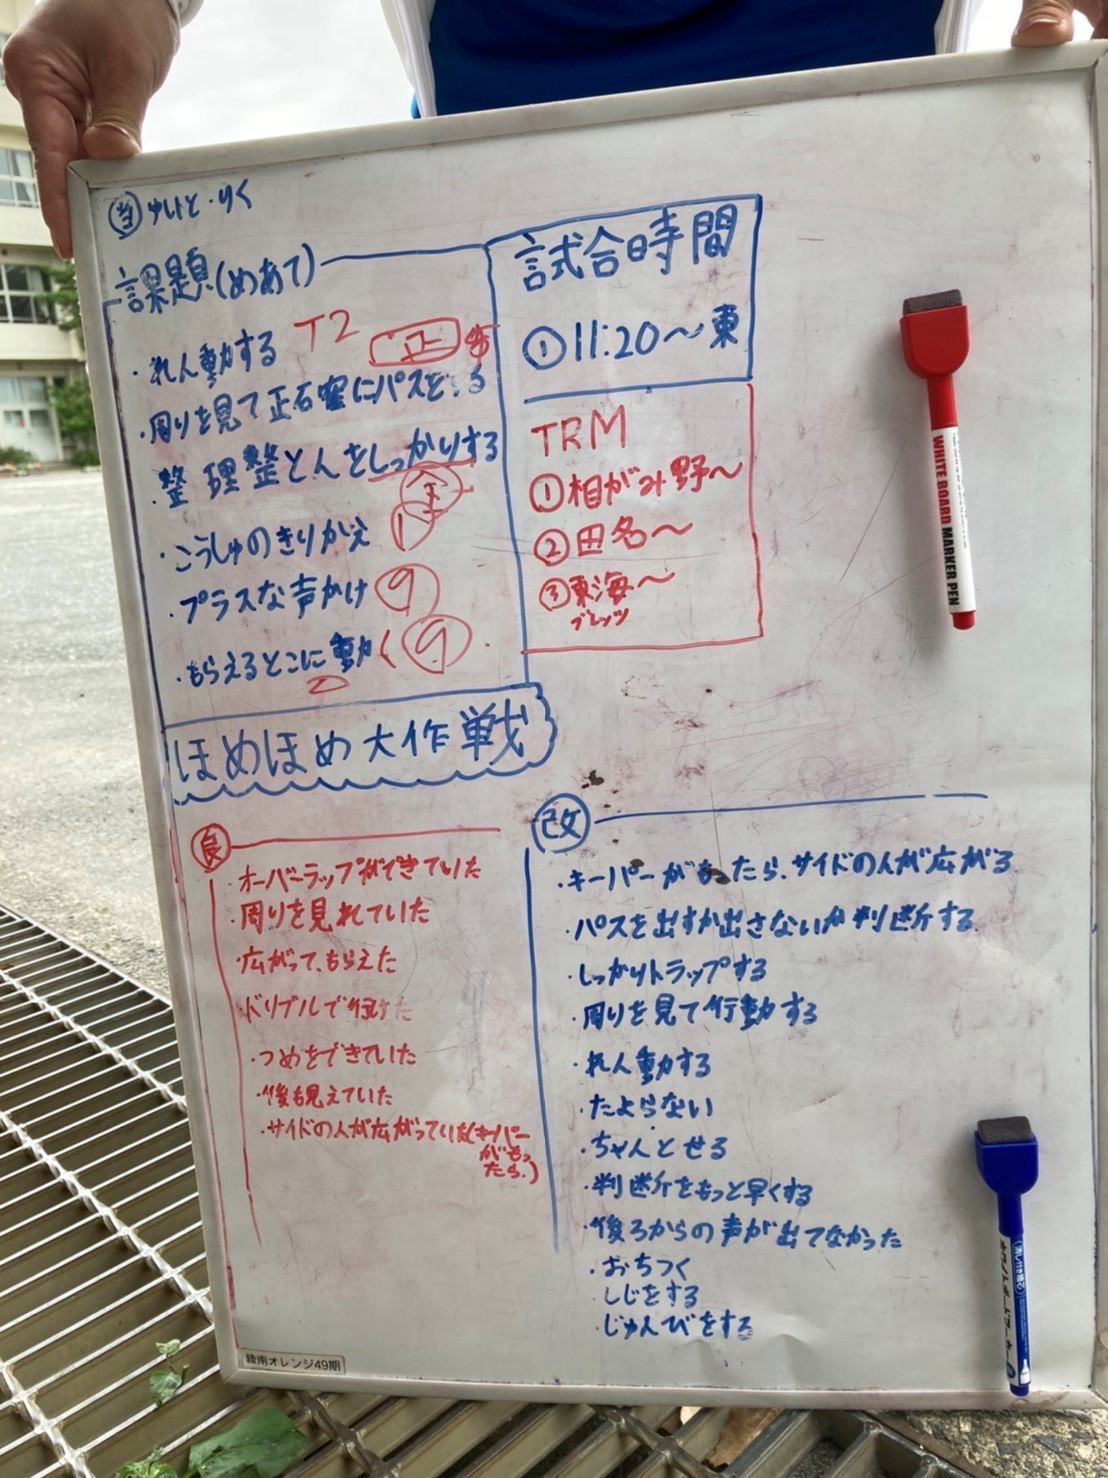 当 ゆいと・りく
課題(めあて)
・れん動する T2 正
・周りを見て正石窪にパスをする
・整理整とんをしっかりする
・こうしゅのきりかえ
・プラスな声かけ 9
・もらえるとこに動く 9
試合時間
①11:20〜東
TRM
①相がみ野〜
②田名〜
③東海〜
ブレッツ
ほめほめ大作戦
良
・オーバーラップができていた
・周りを見れていた
・広がって、もらえた
・ドリブルで行けた
・つめをできていた
・後も見えていた
・サイドの人が広がっていた(キーパー
がもっ
たら.)
改
・キーパーがもったら、サイドの人が広がる
・パスを出すか出さないか判断する
・しっかりトラップする
・周りを見て行動する
・れん動する
・たよらない
・ちゃんとせる
・判断をもっと早くする
・後ろからの声が出てなかった
・おちつく
・しじをする
・じゅんびをする
綾南オレンジ49期
WHITE BOARD MARKER PEN
ホワイトボードマーカー